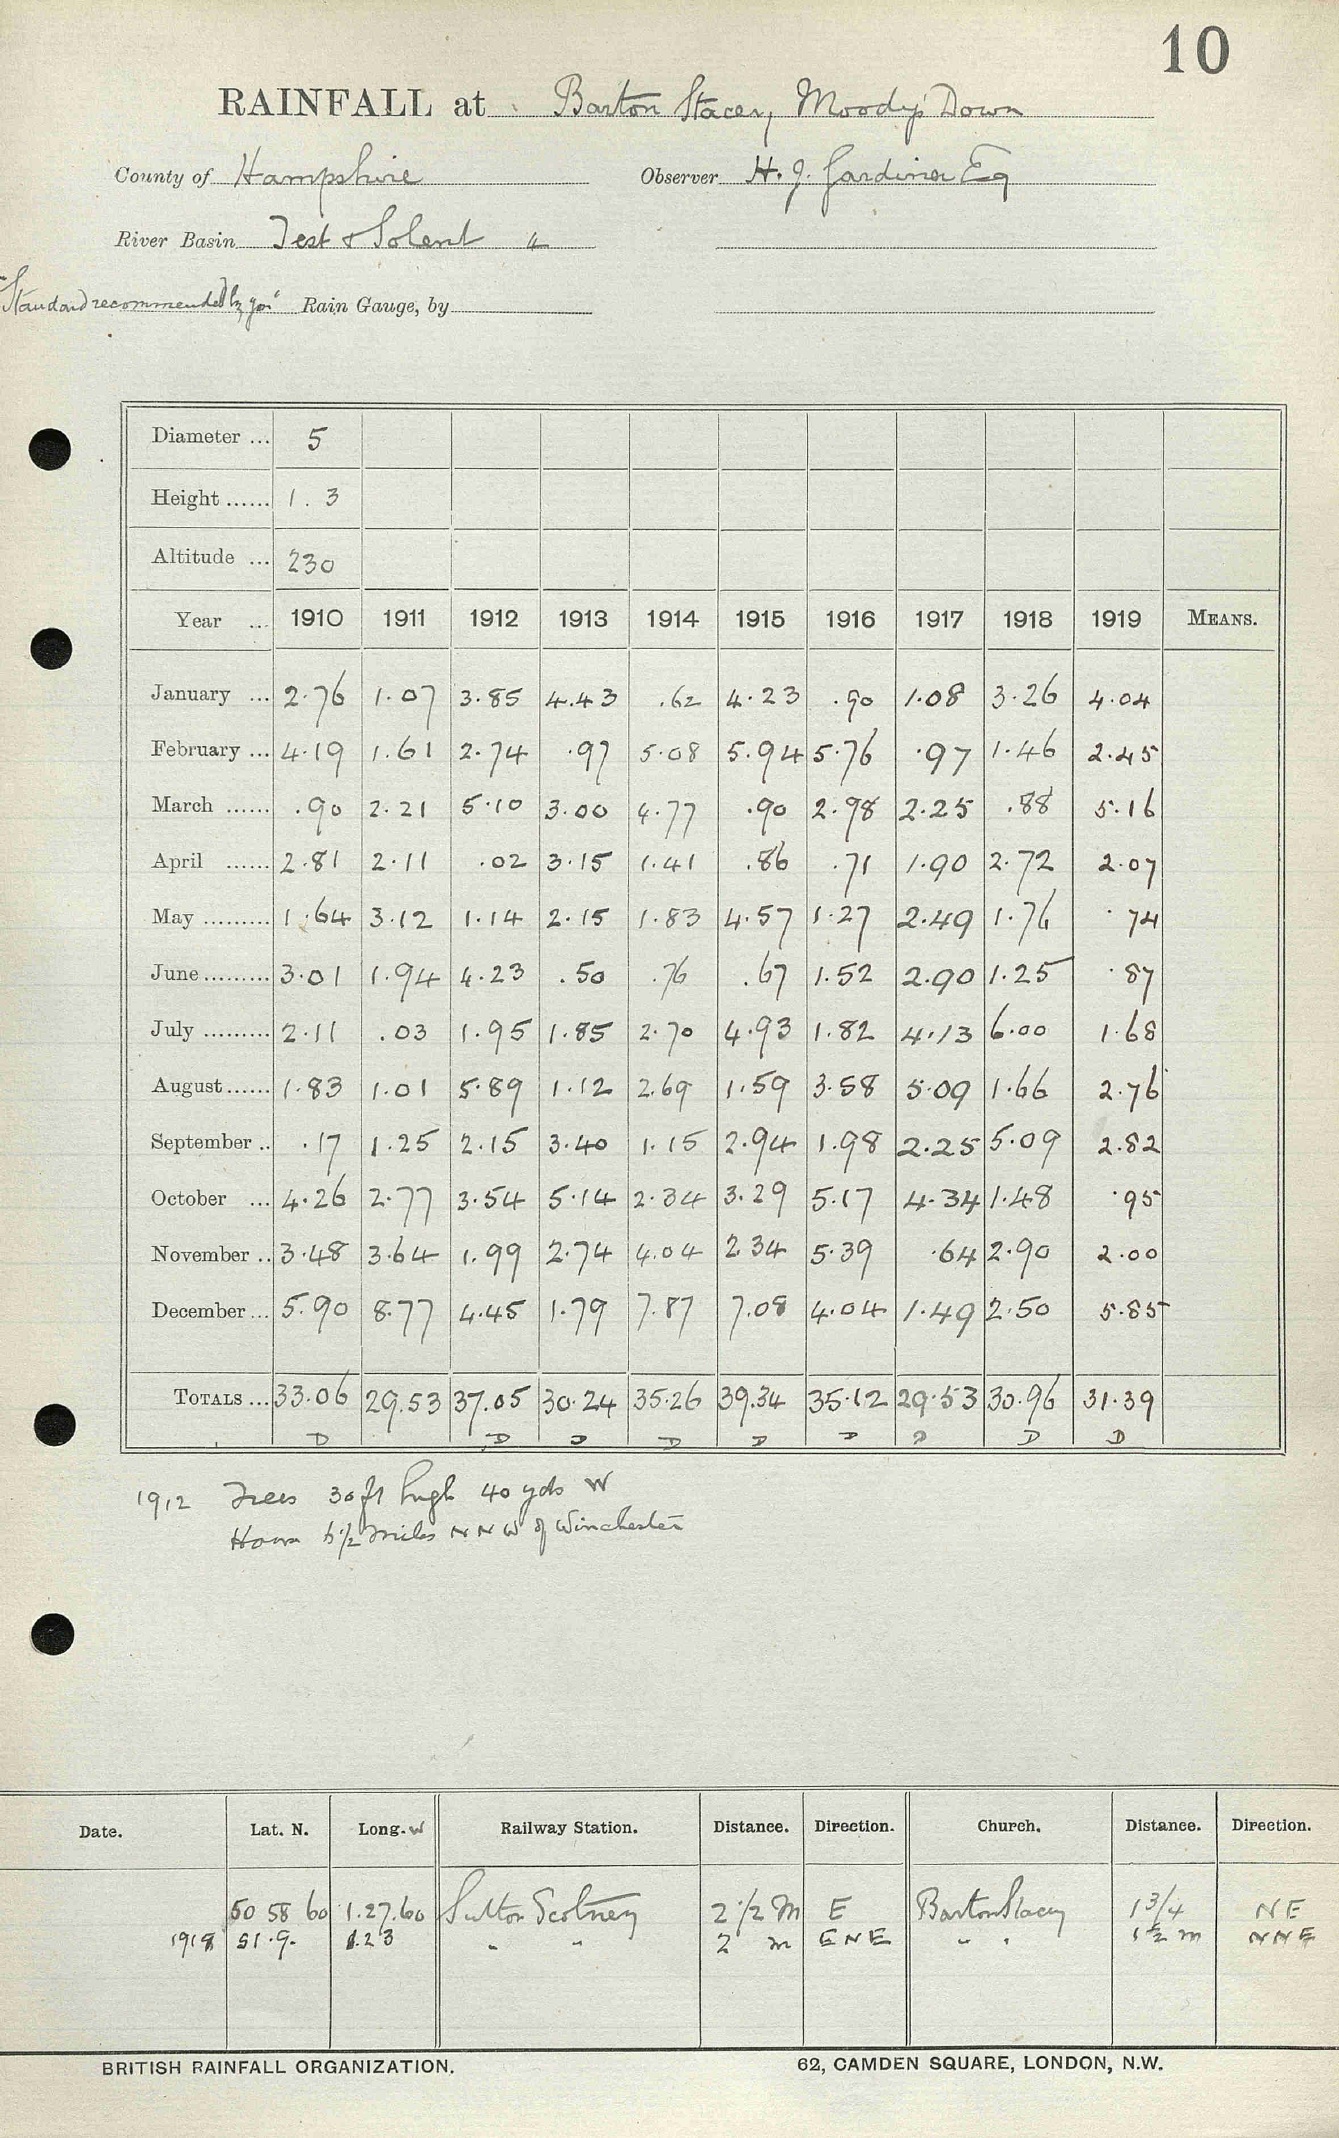 10
RAINFALL at Barton Stacey, Moody's Down
County of Hampshire Observer H. J. Gardiner Esq
River Basin Test & Solent 4
"Standard recommended by you" Rain Gauge, by
Diameter ... 5
Height ...... 1.3
Altitude ... 230
Year ... 1910 1911 1912 1913 1914 1915 1916 1917 1918 1919 MEANS.
January ... 2.76 1.07 3.85 4.43 .62 4.23 .90 1.08 3.26 4.04
February ... 4.19 1.61 2.74 .97 5.08 5.94 5.76 .97 1.46 2.45
March ...... .90 2.21 5.10 3.00 4.77 .90 2.98 2.25 .88 5.16
April ...... 2.81 2.11 .02 3.15 1.41 .86 .71 1.90 2.72 2.07
May ......... 1.64 3.12 1.14 2.15 1.83 4.57 1.27 2.49 1.76 .74
June ......... 3.01 1.94 4.23 .50 .76 .67 1.52 2.90 1.25 .87
July ......... 2.11 .03 1.95 1.85 2.70 4.93 1.82 4.13 6.00 1.68
August ...... 1.83 1.01 5.89 1.12 2.69 1.59 3.58 5.09 1.66 2.76
September .. .17 1.25 2.15 3.40 1.15 2.94 1.98 2.25 5.09 2.82
October ... 4.26 2.77 3.54 5.14 2.34 3.29 5.17 4.34 1.48 .95
November .. 3.48 3.64 1.99 2.74 4.04 2.34 5.39 .64 2.90 2.00
December ... 5.90 8.77 4.45 1.79 7.87 7.08 4.04 1.49 2.50 5.85
TOTALS ... 33.06 29.53 37.05 30.24 35.26 39.34 35.12 29.53 30.96 31.39
D D D D D D D D D
1912 Trees 30 ft high 40 yds W
6 1/2 miles N N W of Winchester
Date. Lat. N. Long. W Railway Station. Distance. Direction. Church. Distance. Direction.
50 58 60 1.27.60 Sutton Scotney 2 1/2 M E Barton Stacey 1 3/4 NE
1918 51.9. 1.23 " " 2 m ENE " " 1 1/2 m NNE
BRITISH RAINFALL ORGANIZATION. 62, CAMDEN SQUARE, LONDON, N.W.